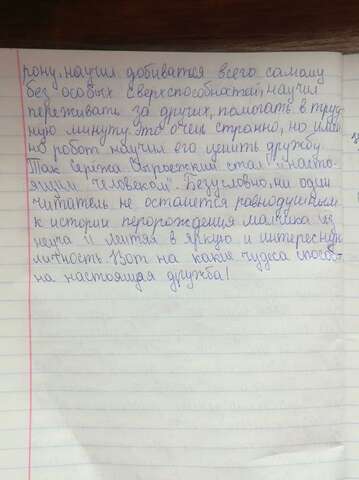 рону, научил добиватся всего самому
без особых сверхспособностей, научил
переживать за других, помогать в труд-
ную минуту. Это очень странно, но имен-
но робот научил его ценить дружбу.
Так Серёжа Сыроежкин стал "насто-
ящим человеком". Безусловно, ни один
читатель не останется равнодушным
к истории перорождения мальчика из
неуча и лентяя в яркую и интересную
личность. Вот на какие чудеса способ-
на настоящая дружба!